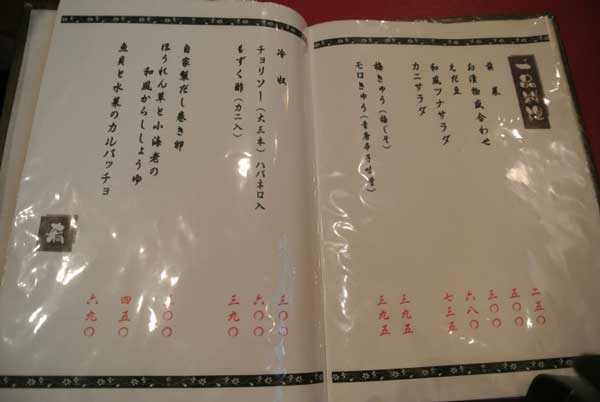 一品料理
前菜
お漬物盛合わせ
えだ豆
和風ツナサラダ
カニサラダ
梅きゅう（梅じそ）
モロきゅう（青唐辛子味噌）
二五〇
五〇〇
三〇〇
六八〇
七三五
三九五
三九五
冷奴
チョリソー（大三本）ハバネロ入
もずく酢（カニ入）
自家製だし巻き卵
ほうれん草と小海老の
和風からししょうゆ
魚貝と水菜のカルパッチョ
三〇〇
六〇〇
三九〇
四五〇
六九〇